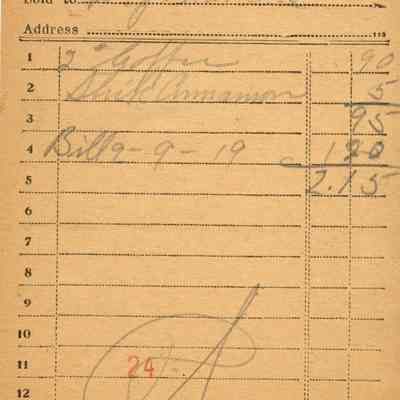 Sold to
Address
1 2# Coffee 90
2 Stick Cinnamon 5
3 95
4 Bill 9-9-19 120
5 2.15
6
7
8
9
10
11 24
12